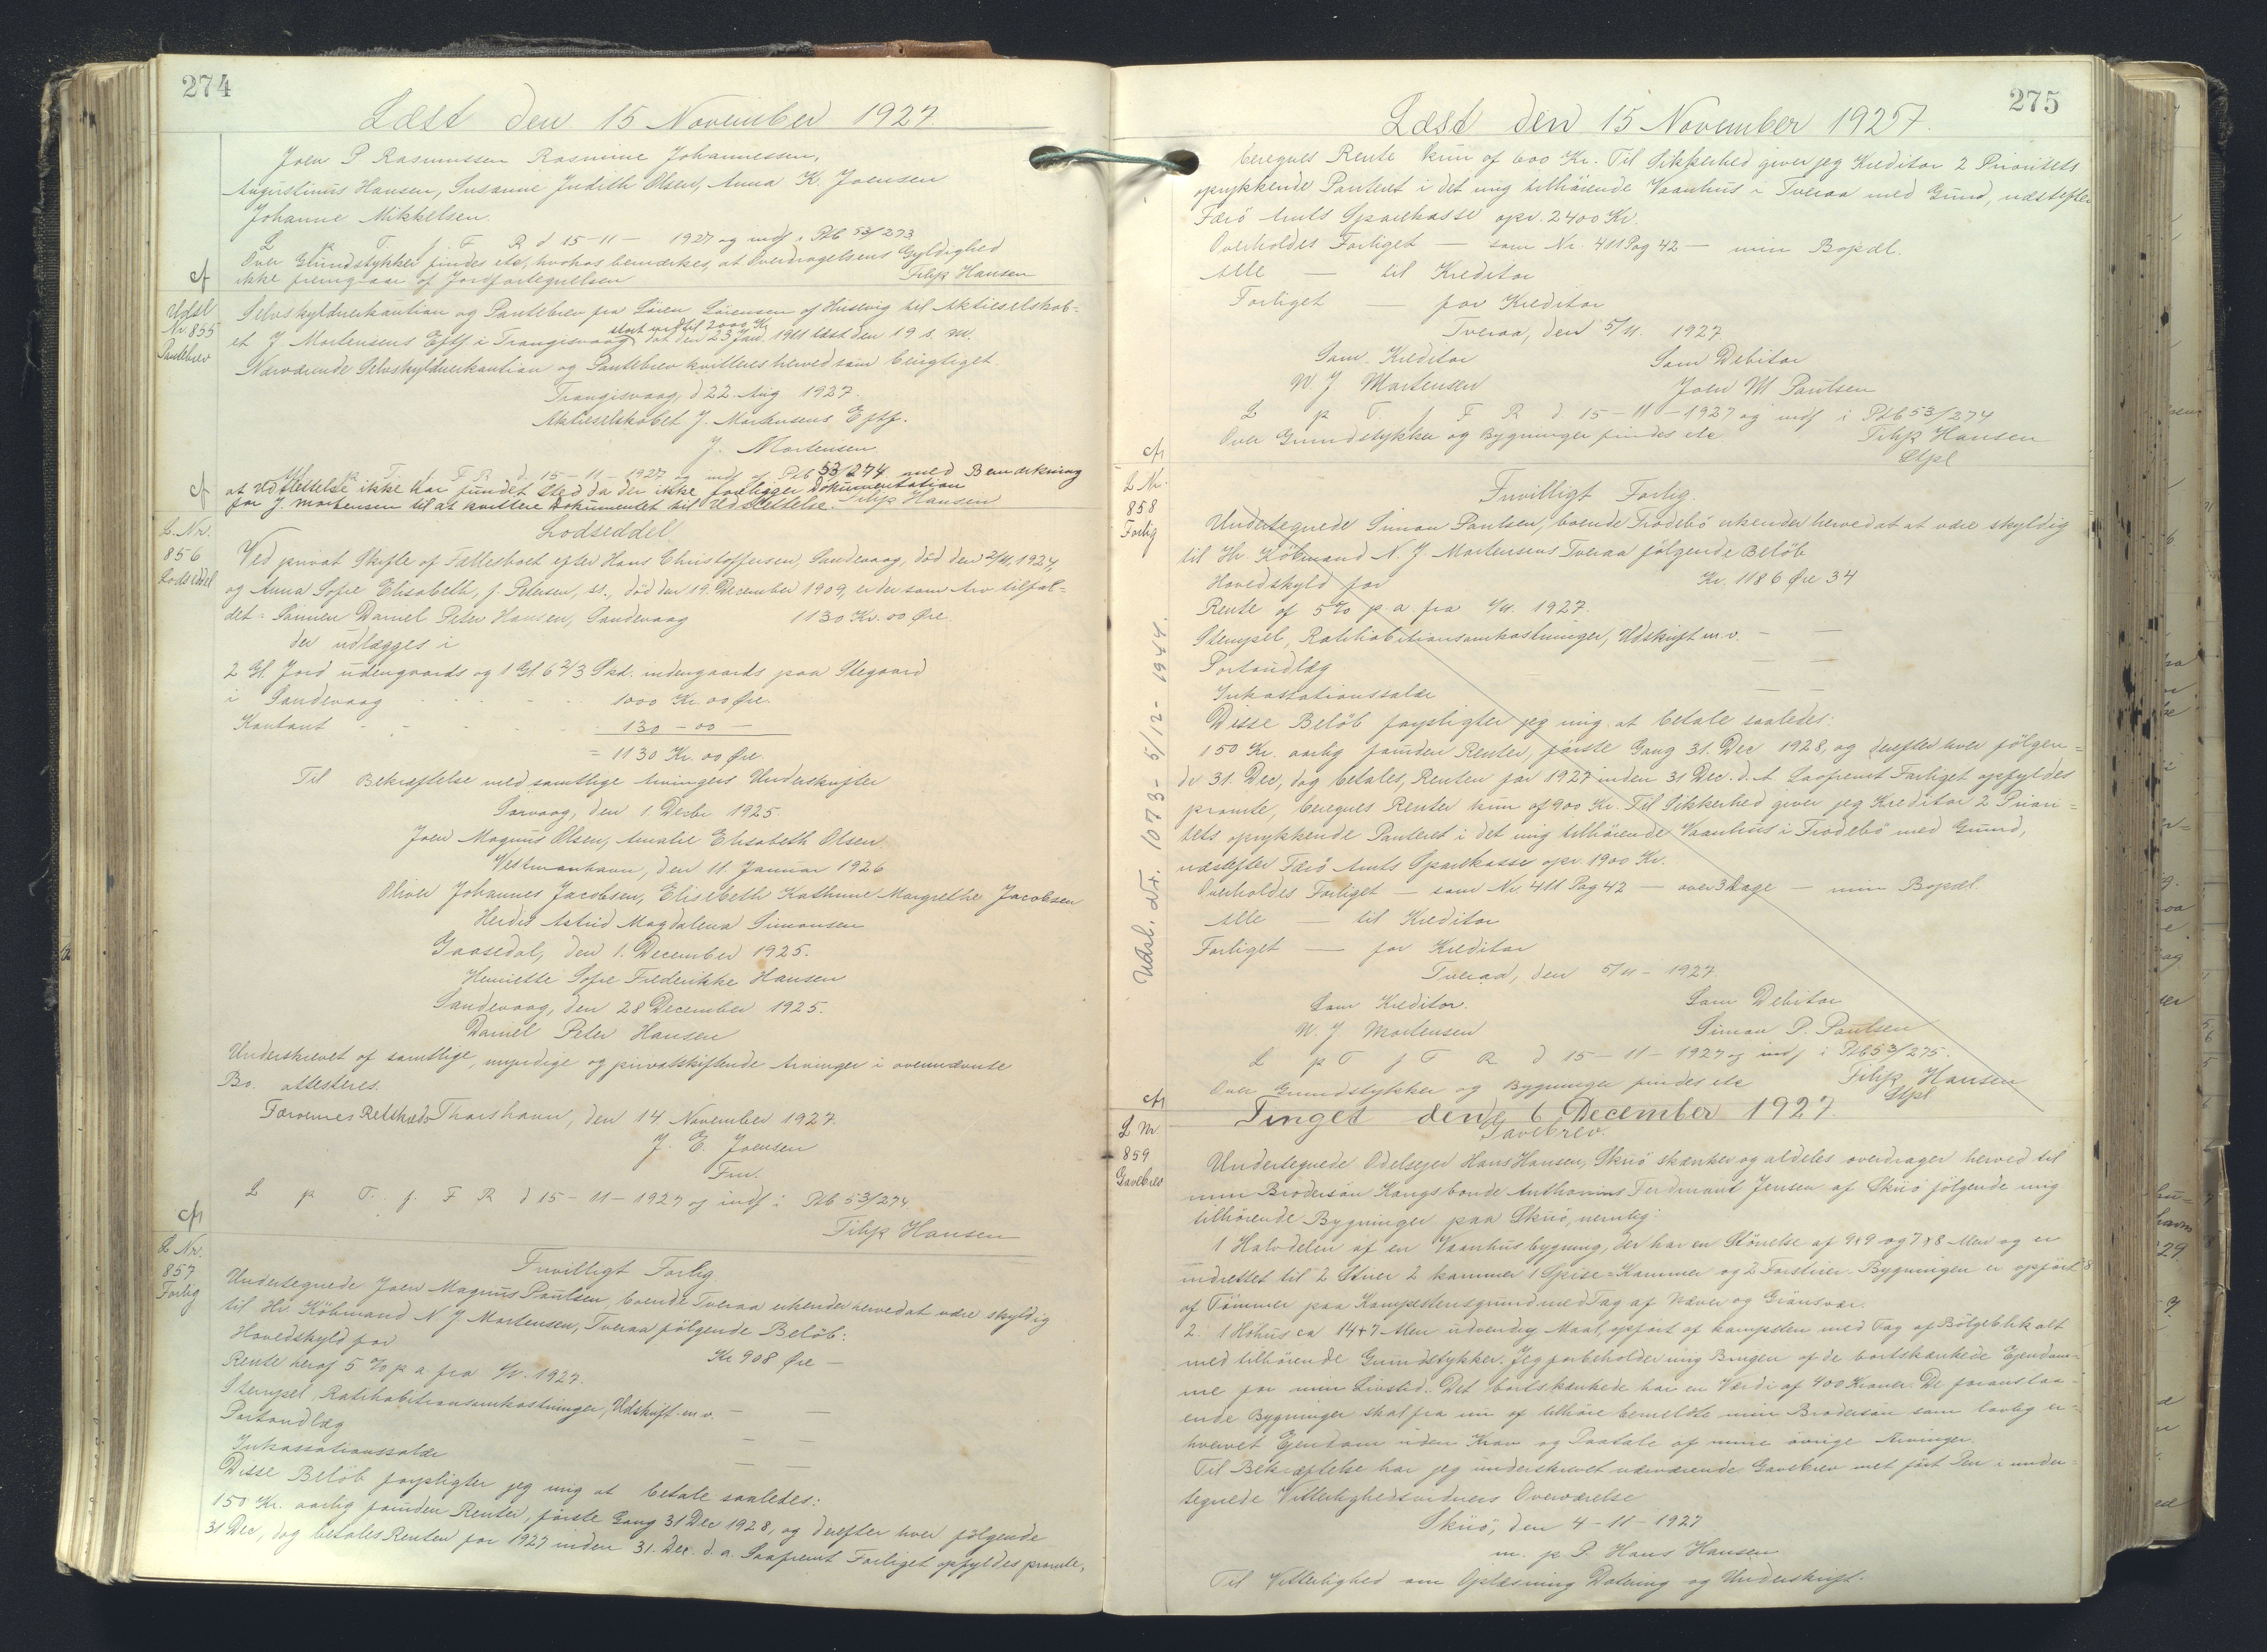 274
Læst den 15 November 1927.
Joen P Rasmussen Rasmine Johannessen,
Augustinus Hansen, Susanne Judith Olsen, Anna K. Joensen
Johanne Mikkelsen.
L p T. f. F R d 15-11- 1927 og indf i Ptb 53/273
Over Grundstykker findes etc, hvorhos bemærkes, at Overdragelsens Gyldighed
cf ikke fremgaar af Jordfortegnelsen Filip Hansen
Udsl
Nr. 855
Pantebrev
Selvskyldnerkaution og Pantebrev fra Sören Sörensen af Husevig til Aktieselskab-
stort indtil 2000 Kr
et J Mortensens Eftf i Trangisvaag dat den 23 Jan. 1911 læst den 19 s. m.
Nærværende Selvskyldnerkaution og Pantebrev kvitteres herved som berigtiget
Trangisvaag, d 22. Aug 1927.
Aktieselskabet J. Mortensens Eftf.
J. Mortensen
L p T. f. F R d. 15-11-1927 og indf i Ptb 53/274 med Bemærkning
cf at Udslettelse ikke har fundet Sted da der ikke foreligger Dokumentation
for J. Mortensen til at kvittere Dokumentet til Udslettelse. Filip Hansen
L. Nr.
856
Lodseddel
Lodseddel
Ved privat Skifte af Fællesboet efter Hans Christoffersen, Sandevaag, död den 2/11, 1924,
og Anna Sofie Elisabeth, f. Petersen, ss., död den 19. December 1909, er der som Arv tilfal-
det: Sönnen Daniel Peter Hansen, Sandevaag 1130 Kr. 00 Øre.
der udlægges i
2 Gl. Jord udengaards og 1 Gl. 6 2/3 Skd. indengaards paa Stegaard
i Sandevaag 1000 Kr. 00 Øre.
Kontant 130 - 00 -
= 1130 Kr. 00 Øre.
Til Bekræftelse med samtlige Arvingers Underskrifter
Sörvaag, den 1. Decbr 1925.
Joen Magnus Olsen, Amalie Elisabeth Olsen
Vestmanhavn, den 11. Januar 1926
Oliver Johannes Jacobsen, Elisebeth Kathrine Margrethe Jacobsen
Herdis Astrid Magdalena Simonsen
Gaasedal, den 1. December 1925.
Henriette Sofie Frederikke Hansen
Sandevaag, den 28 December 1925.
Daniel Peter Hansen
Underskrevet af samtlige, myndige og privatskiftende Arvinger i ovennævnte
Bo. attesteres.
Færöernes Retskreds Thorshavn, den 14. November 1927.
J. E. Joensen
Fm.
L p T. f. F R d 15-11-1927 og indf i Ptb 53/274
cfr Filip Hansen
L Nr.
857
Forlig
Frivilligt Forlig
Undertegnede Joen Magnus Paulsen, boende Tveraa erkender herved at være skyldig
til Hr. Köbmand N. J. Mortensen, Tveraa fölgende Belöb:
Hovedskyld for Kr 908 Øre -
Rente heraf 5 % p a fra 1/11. 1927.
Stempel, Ratihabitionsomkostninger, Udskrift m. v. - -
Portoudlæg - -
Inkassationssalær - -
Disse Belöb forpligter jeg mig at betale saaledes:
150 Kr. aarlig foruden Renter, förste Gang 31 Dec 1928, og derefter hver fölgende
31 Dec, dog betales Renten for 1927 inden 31. Dec. d. a. Saafremt Forliget opfyldes promte,
275
Læst den 15 November 1927.
beregnes Rente kun af 600 Kr. Til Sikkerhed giver jeg Kreditor 2 Prioritets
oprykkende Panteret i det mig tilhörende Vaanhus i Tveraa med Grund, næstefter
Færö Amts Sparekasse opr. 2400 Kr.
Overholdes Forliget - som Nr. 411 Pag 42 - min Bopæl.
Alle - til Kreditor
Forliget - for Kreditor
Tveraa, den 5/11. 1927.
Som Kreditor Som Debitor
N. J. Mortensen Joen M Paulsen
L p T. f F R d. 15-11-1927 og indf i Ptb 53/274
Over Grundstykker og Bygninger findes etc Filip Hansen
cfr Stpl
L Nr.
858
Forlig
Frivilligt Forlig.
Undertegnede Simon Paulsen, boende Frodebö erkender herved at at være skyldig
til Hr. Köbmand N. J Mortensens Tveraa fölgende Belöb
Hovedskyld for Kr. 1186 Øre 34
Rente af 5 % p. a. fra 1/11. 1927.
Stempel, Ratihabitionsomkostninger, Udskrift m. v. - -
Portoudlæg - -
Inkassationssalær - -
Disse Belöb forpligter jeg mig at betale saaledes:
150 Kr. aarlig foruden Renter, förste Gang 31. Dec 1928, og derefter hver fölgen-
de 31. Dec, dog betales, Renten for 1927 inden 31 Dec. d. A Saafremt Forliget opfyldes
promte, beregnes Renter kun af 900 Kr. Til Sikkerhed giver jeg Kreditor 2 Priori-
tets oprykkende Panteret i det mig tilhörende Vaanhus i Frodebö med Grund,
næstefter Færö Amts Sparekasse opr 1900 Kr.
Overholdes Forliget - som Nr. 411 Pag 42 - over 3 Dage - min Bopæl.
Alle - til Kreditor
Forliget - for Kreditor
Tveraa, den 5/11 - 1927.
Som Kreditor. Som Debitor
N. J. Mortensen Simon P. Paulsen
L p T f F R d 15-11-1927 og indf i Ptb 53/275.
Over Grundstykker og Bygninger findes etc Filip Hansen
cfr Stpl
Udsl. L Nr. 1073 - 5/12 - 1944.
Tinget den 6 December 1927.
L Nr
859
Gavebrev
Gavebrev.
Undertegnede Odelsejer Hans Hansen, Skuö skænker og aldeles overdrager herved til
min Brodersön Kongsbonde Anthonius Ferdinant Jensen af Skuö fölgende mig
tilhörende Bygninger paa Skuö, nemlig:
1 Halvdelen af en Vaanhusbygning, der har en Störrelse af 9x9 og 7x8 Alen og er
indrettet til 2 Stuer 2 kammer 1 Spise-Kammer og 2 Forstuer. Bygningen er opfört
af Tömmer paa Kampestensgrund med Tag af Næver og Grönsvær.
2. 1 Höhus ca 14+7 Alen udvendig Maal, opfört af kampesten med Tag af Bölgeblik alt
med tilhörende Grundstykker. Jeg forbeholder mig Brugen af de bortskænkede Ejendom-
me for min Livstid. Det bortskænkede har en Værdi af 400 Kroner. De foranstaa-
ende Bygninger skal fra nu af tilhöre bemeldte min Brodersön som lovlig er-
hvervet Ejendom uden Krav og Paatale af mine övrige Arvinger.
Til Bekræftelse har jeg underskrevet nærværende Gavebrev met fört Pen i under-
tegnede Vitterlighedsvidners Overværelse
Skuö, den 4-11-1927
m. p P. Hans Hansen
Til Vitterlighed om Oplæsning Datering og Underskrift.